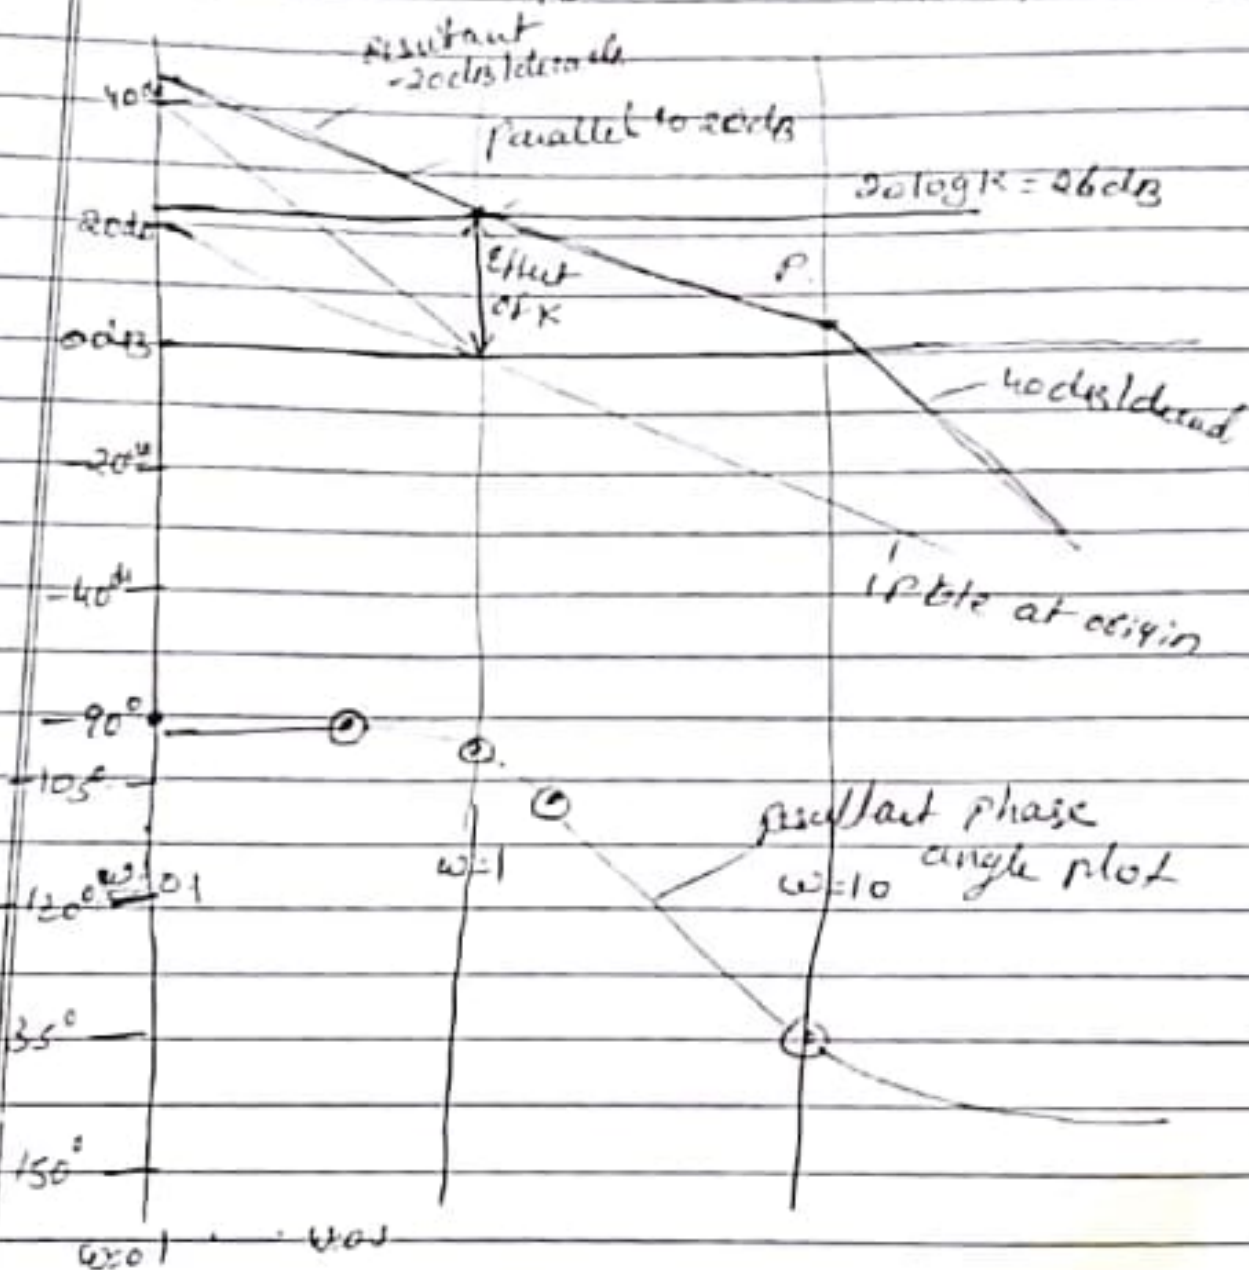 resultant
-20dB/decade
40dB
parallel to 20dB
20logK = 26dB
20dB
Effect
of K
P.
0dB
40dB/decad
-20dB
1 Pole at origin
-40dB
-90°
-105°
resultant phase
angle plot
ω=1
ω=10
120°
35°
150°
ω=0.1